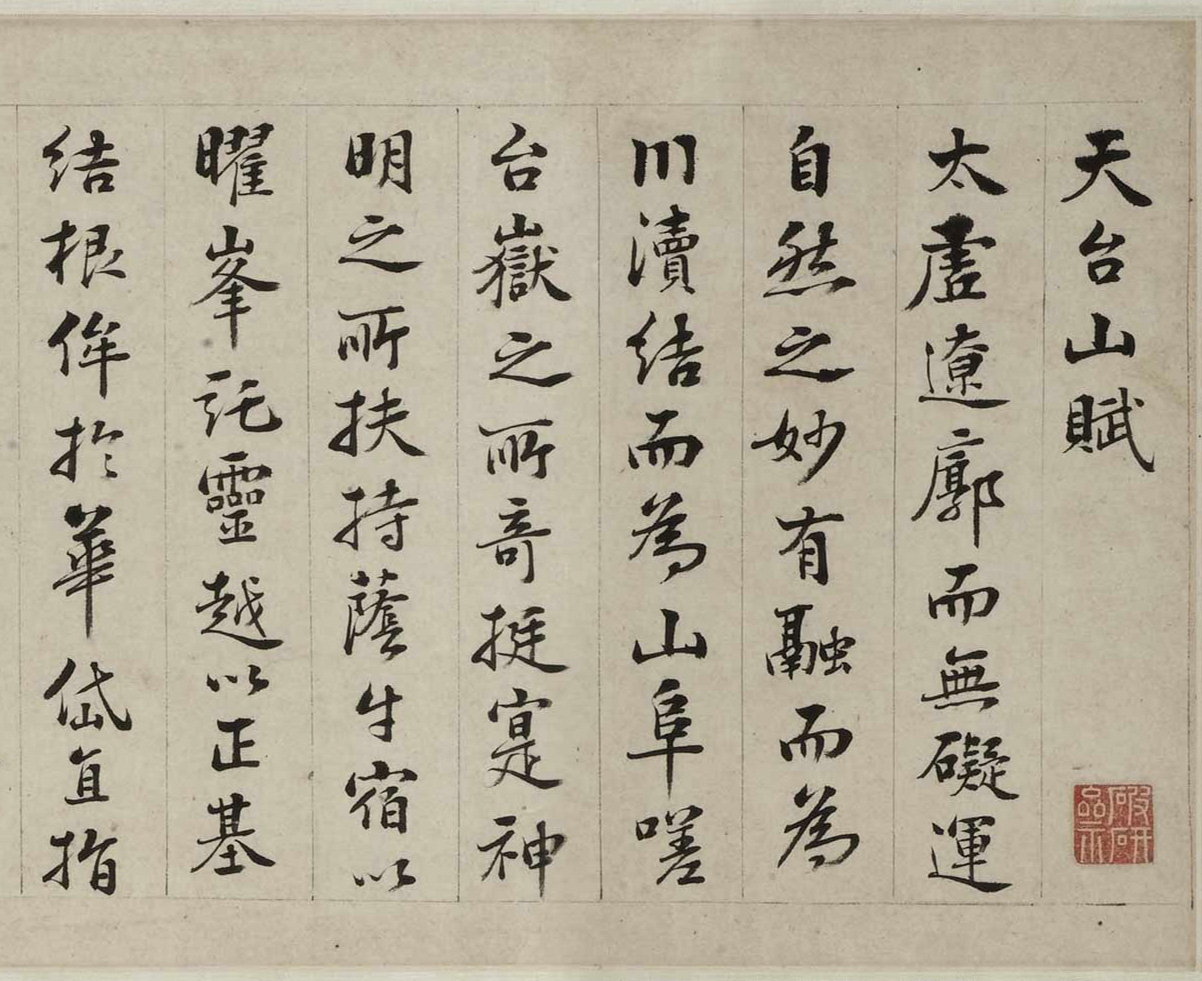 天台山賦
太虛遼廓而無礙運
自然之妙有融而為
川瀆結而為山阜嗟
台嶽之所奇挺寔神
明之所扶持蔭牛宿以
曜峯託靈越以正基
結根侔於華岱直指